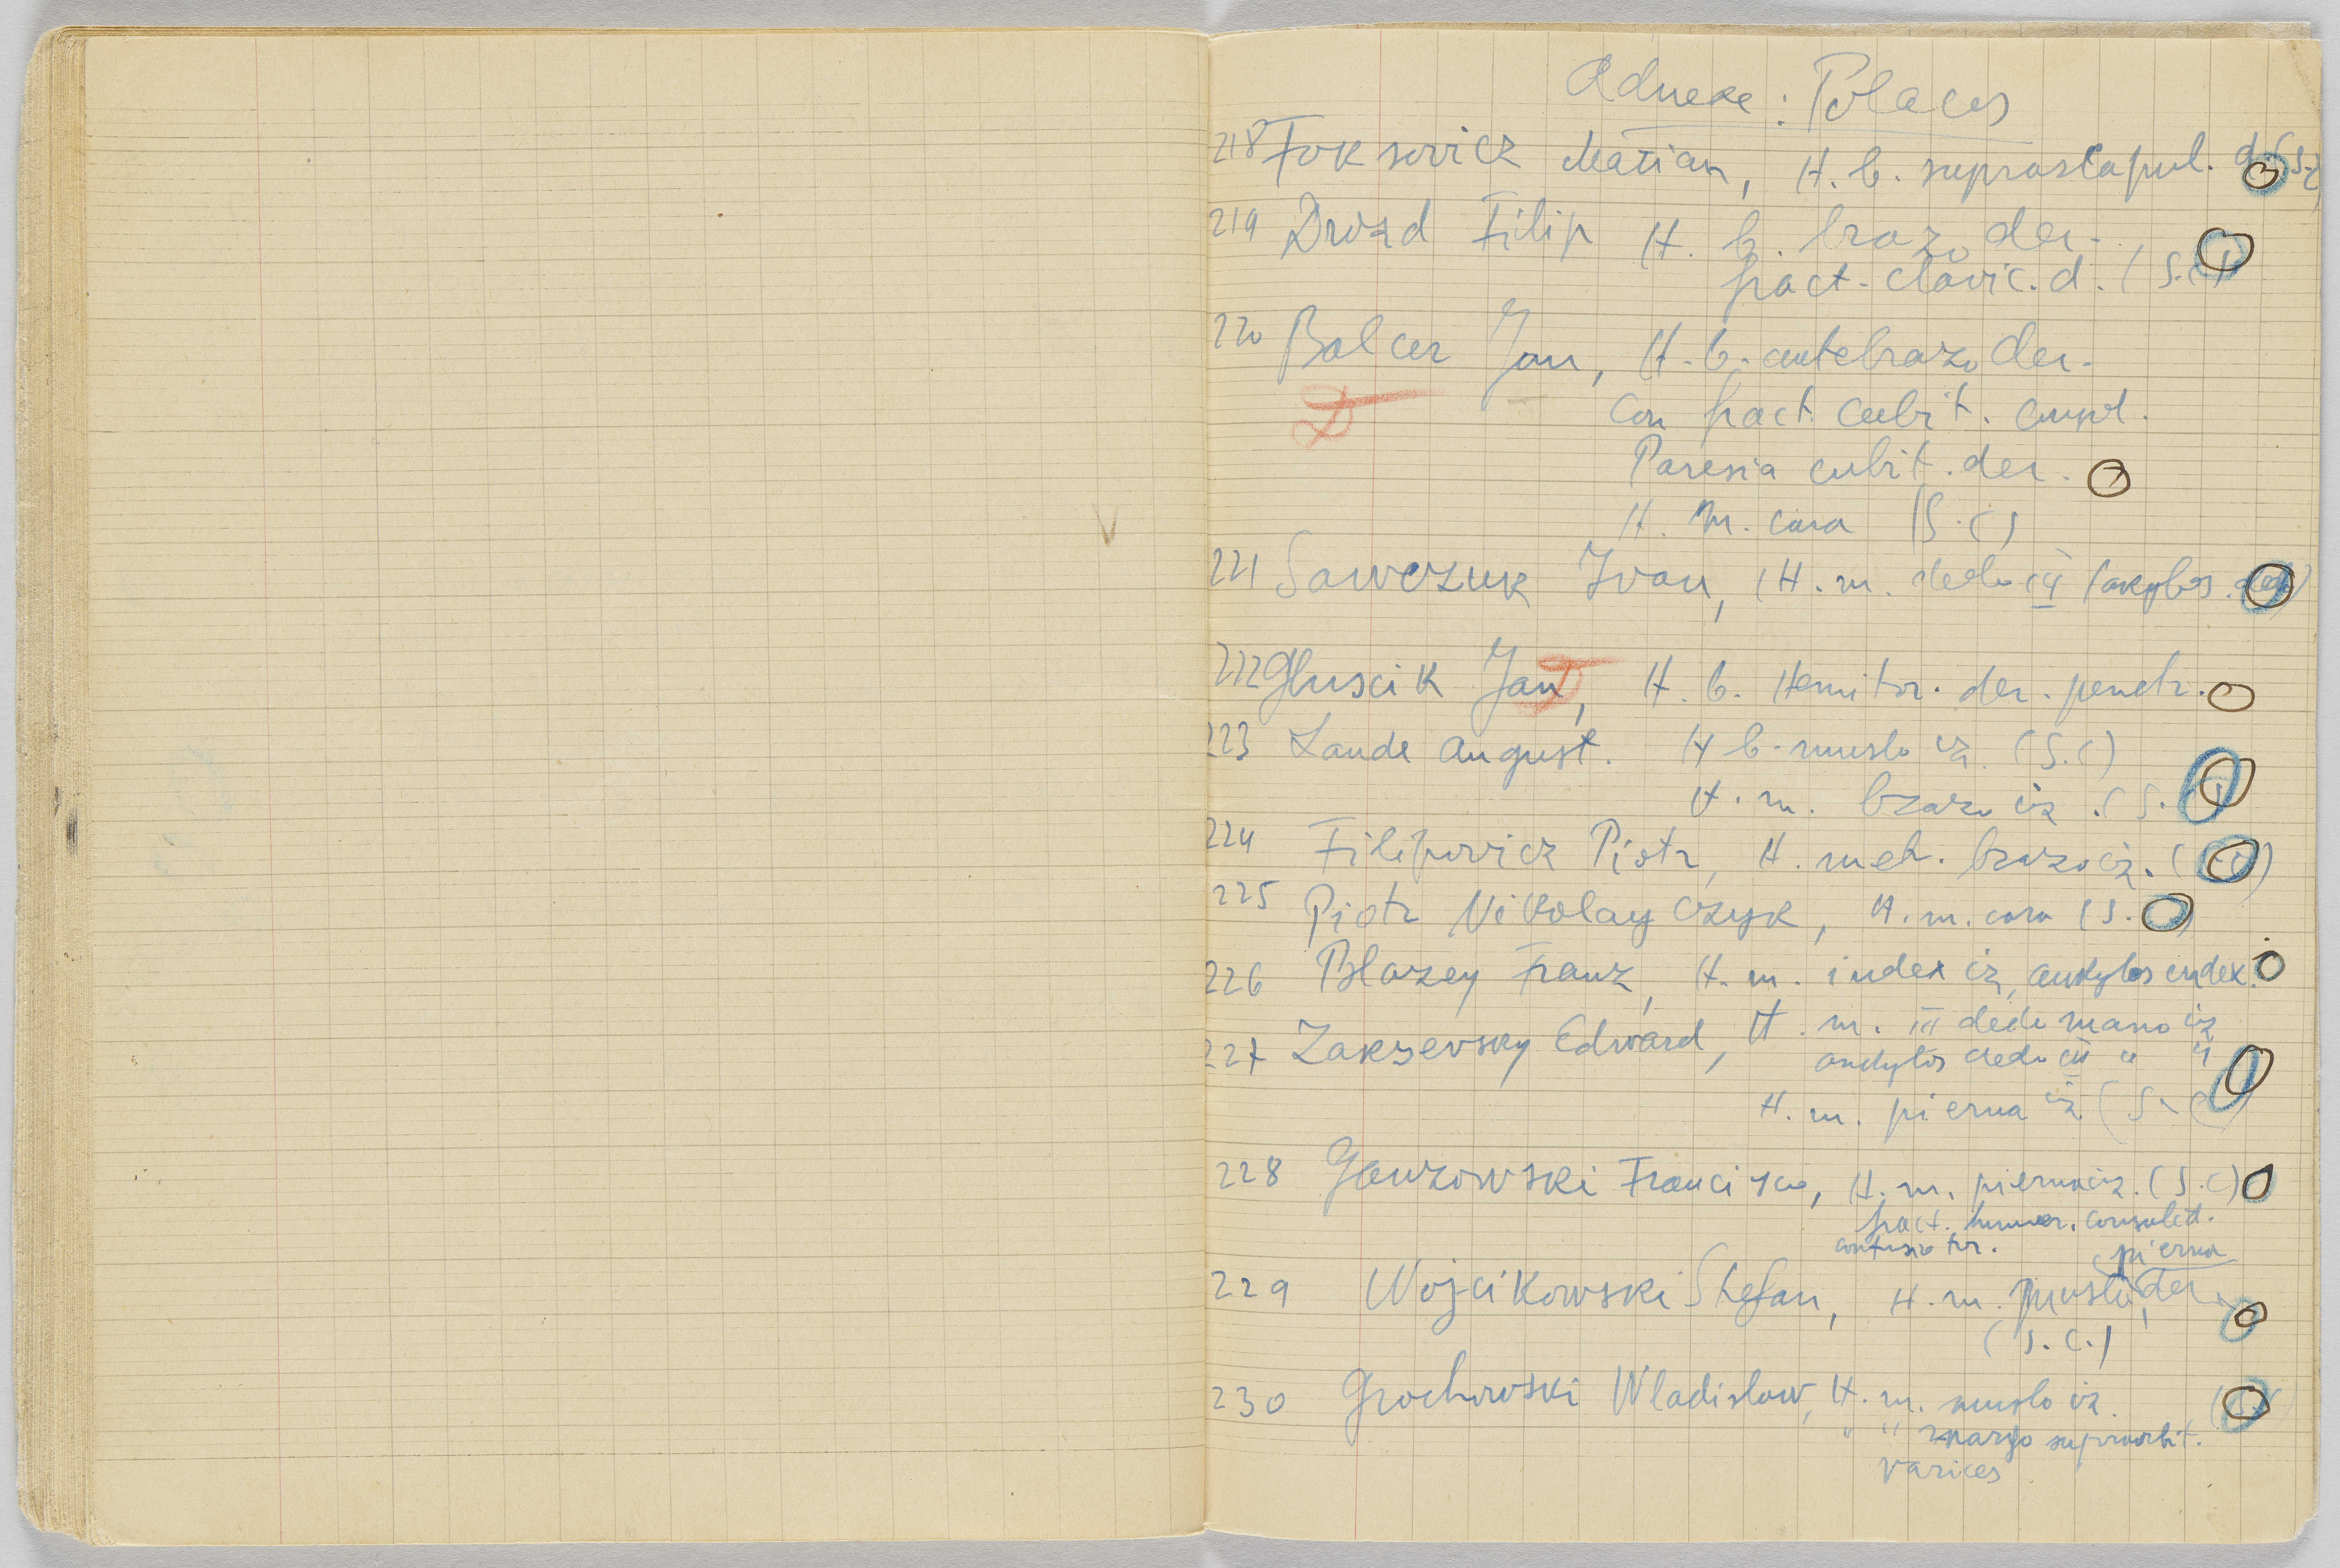 Adnexe : Polaces
218 Foksovicz Marian, H. b. suprascapul. d. (S.C)
219 Drozd Filip H. b. brazo der.
fract. clavic. d. (S.C)
220 Balcer Jan, H. b. antebrazo der.
D
Con fract. cubit. compl.
Paresia cubit. der.
H. m. cara (S.C)
221 Sawczuk Ivan, (H. m. dedo IV (akylos.
222 Gluscik Jan, H. b. Hemitor. der. penetr.
D
223 Lande August. H b. muslo iz. (S.C)
H. m. brazo iz. (S.
224 Filipovicz Piotr, H. met. brazo iz. (
225 Piotr Nikolayczyk, H. m. cara (S.
226 Blazey Franz, H. m. index iz, ankylos index.
227 Zaksevsky Edward, H. m. III dedo mano iz
ankylos dedo III " "
H. m. pierna iz (S.C)
228 Ganzowski Francisco, H. m. pierna iz. (S.C)
fract. humer. consolid.
contusio tor.
pierna
229 Wojcikowski Stefan, H. m. muslo, der.
(S.C.)
230 Grochowski Wladislaw, H. m. muslo iz. (S.C)
" " margo supraorbit.
varices